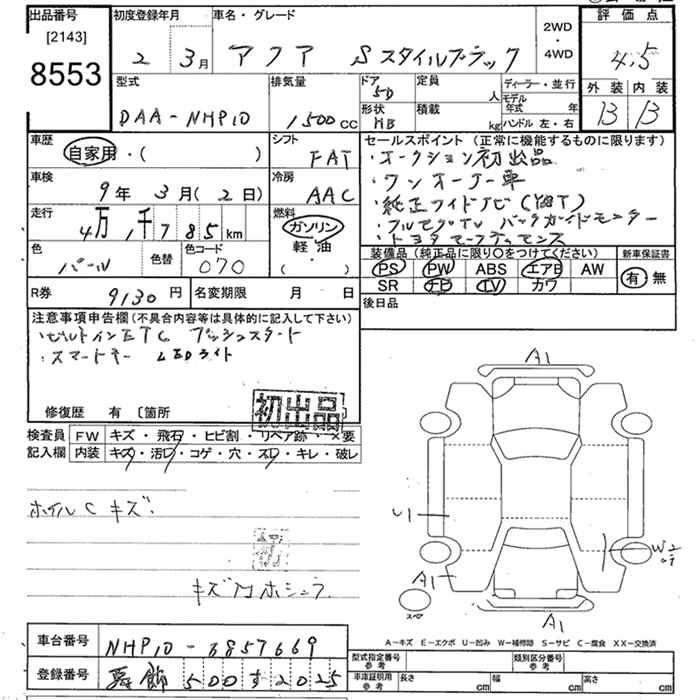 出品番号 初度登録年月 車名・グレード 2WD・4WD 評価点
[2143]
8553
2 3月 アクア Sスタイルブラック 4.5
外装 内装
B B
型式 排気量 ドア 定員 ディーラー・並行
DAA-NHP10 1,500cc 5D 人 モデル年式 年
形状 積載
HB kg ハンドル 左・右
車歴 シフト セールスポイント (正常に機能するものに限ります)
自家用・( ) FAT ・オークション初出品
車検 冷房 ・ワンオーナー車
9年 3月(2日) AAC ・純正ワイドナビ
走行 燃料 ・フルセグTV バックガイドモニター
4万1千785km ガソリン ・トヨタ メーフティセンス
軽・油
・( )
色 色替 色コード 装備品 (純正品に限り○をつけてください) 新車保証書
パール 070 PS PW ABS エアB AW 有・無
SR ナビ TV カワ
R券 9130円 名変期限 月 日 後日品
注意事項申告欄 (不具合内容等は具体的に記入して下さい)
・ビルトインETC プッシュスタート
・スマートキー LEDライト
修復歴 有 〔箇所
初出品
検査員 FW キズ・飛石・ヒビ割・リペア跡・×要
記入欄 内装 キズ・汚レ・コゲ・穴・スレ・キレ・破レ
ホイルC キズ.
A1
U1
A1
A1
A-キズ E-エクボ U-凹み W-補修跡 S-サビ C-腐食 XX-交換済
車台番号 NHP10-6857669
登録番号 500す2025
型式指定番号参考 類別区分番号参考
車庫証明用参考 長さ cm 幅 cm 高さ cm